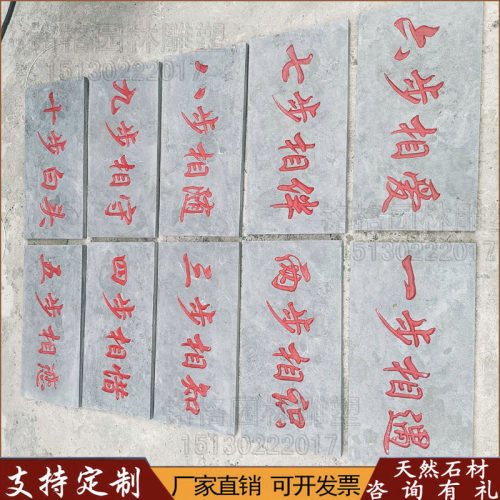 园林雕塑
15130222017
十步白头
九步相守
八步相随
七步相伴
六步相爱
五步相恋
四步相惜
三步相知
两步相识
一步相遇
15130222017
支持定制
厂家直销 可开发票
天然石材
咨询有礼